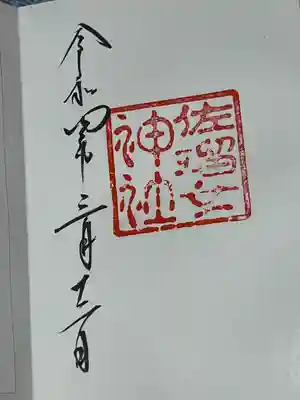 佐瑠女
神社
令和四年三月十一日